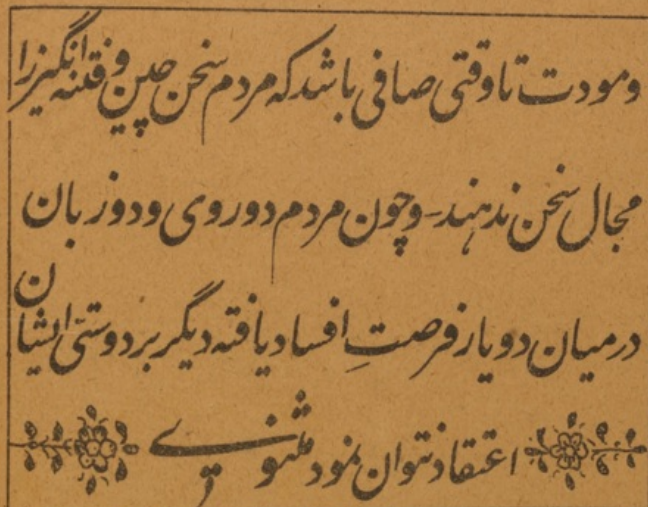 ومودت تا وقتی صافی باشد که مردم سخن چین و فتنه انگیز را
مجال سخن ندهند - و چون مردم دوروی و دوزبان
درمیان دو یار فرصتِ افساد یافته دیگر بر دوستیِ ایشان
اعتقاد نتوان نمود مثنوی